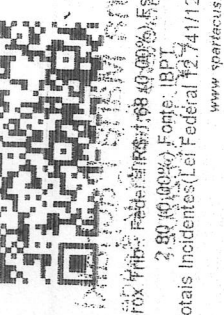 rox Trib. Federal R$:1.68 (0.00%) Es
2.80 (0.00%) Fonte: IBPT
otais Incidentes(Lei Federal 12.741/12
www.spartacus